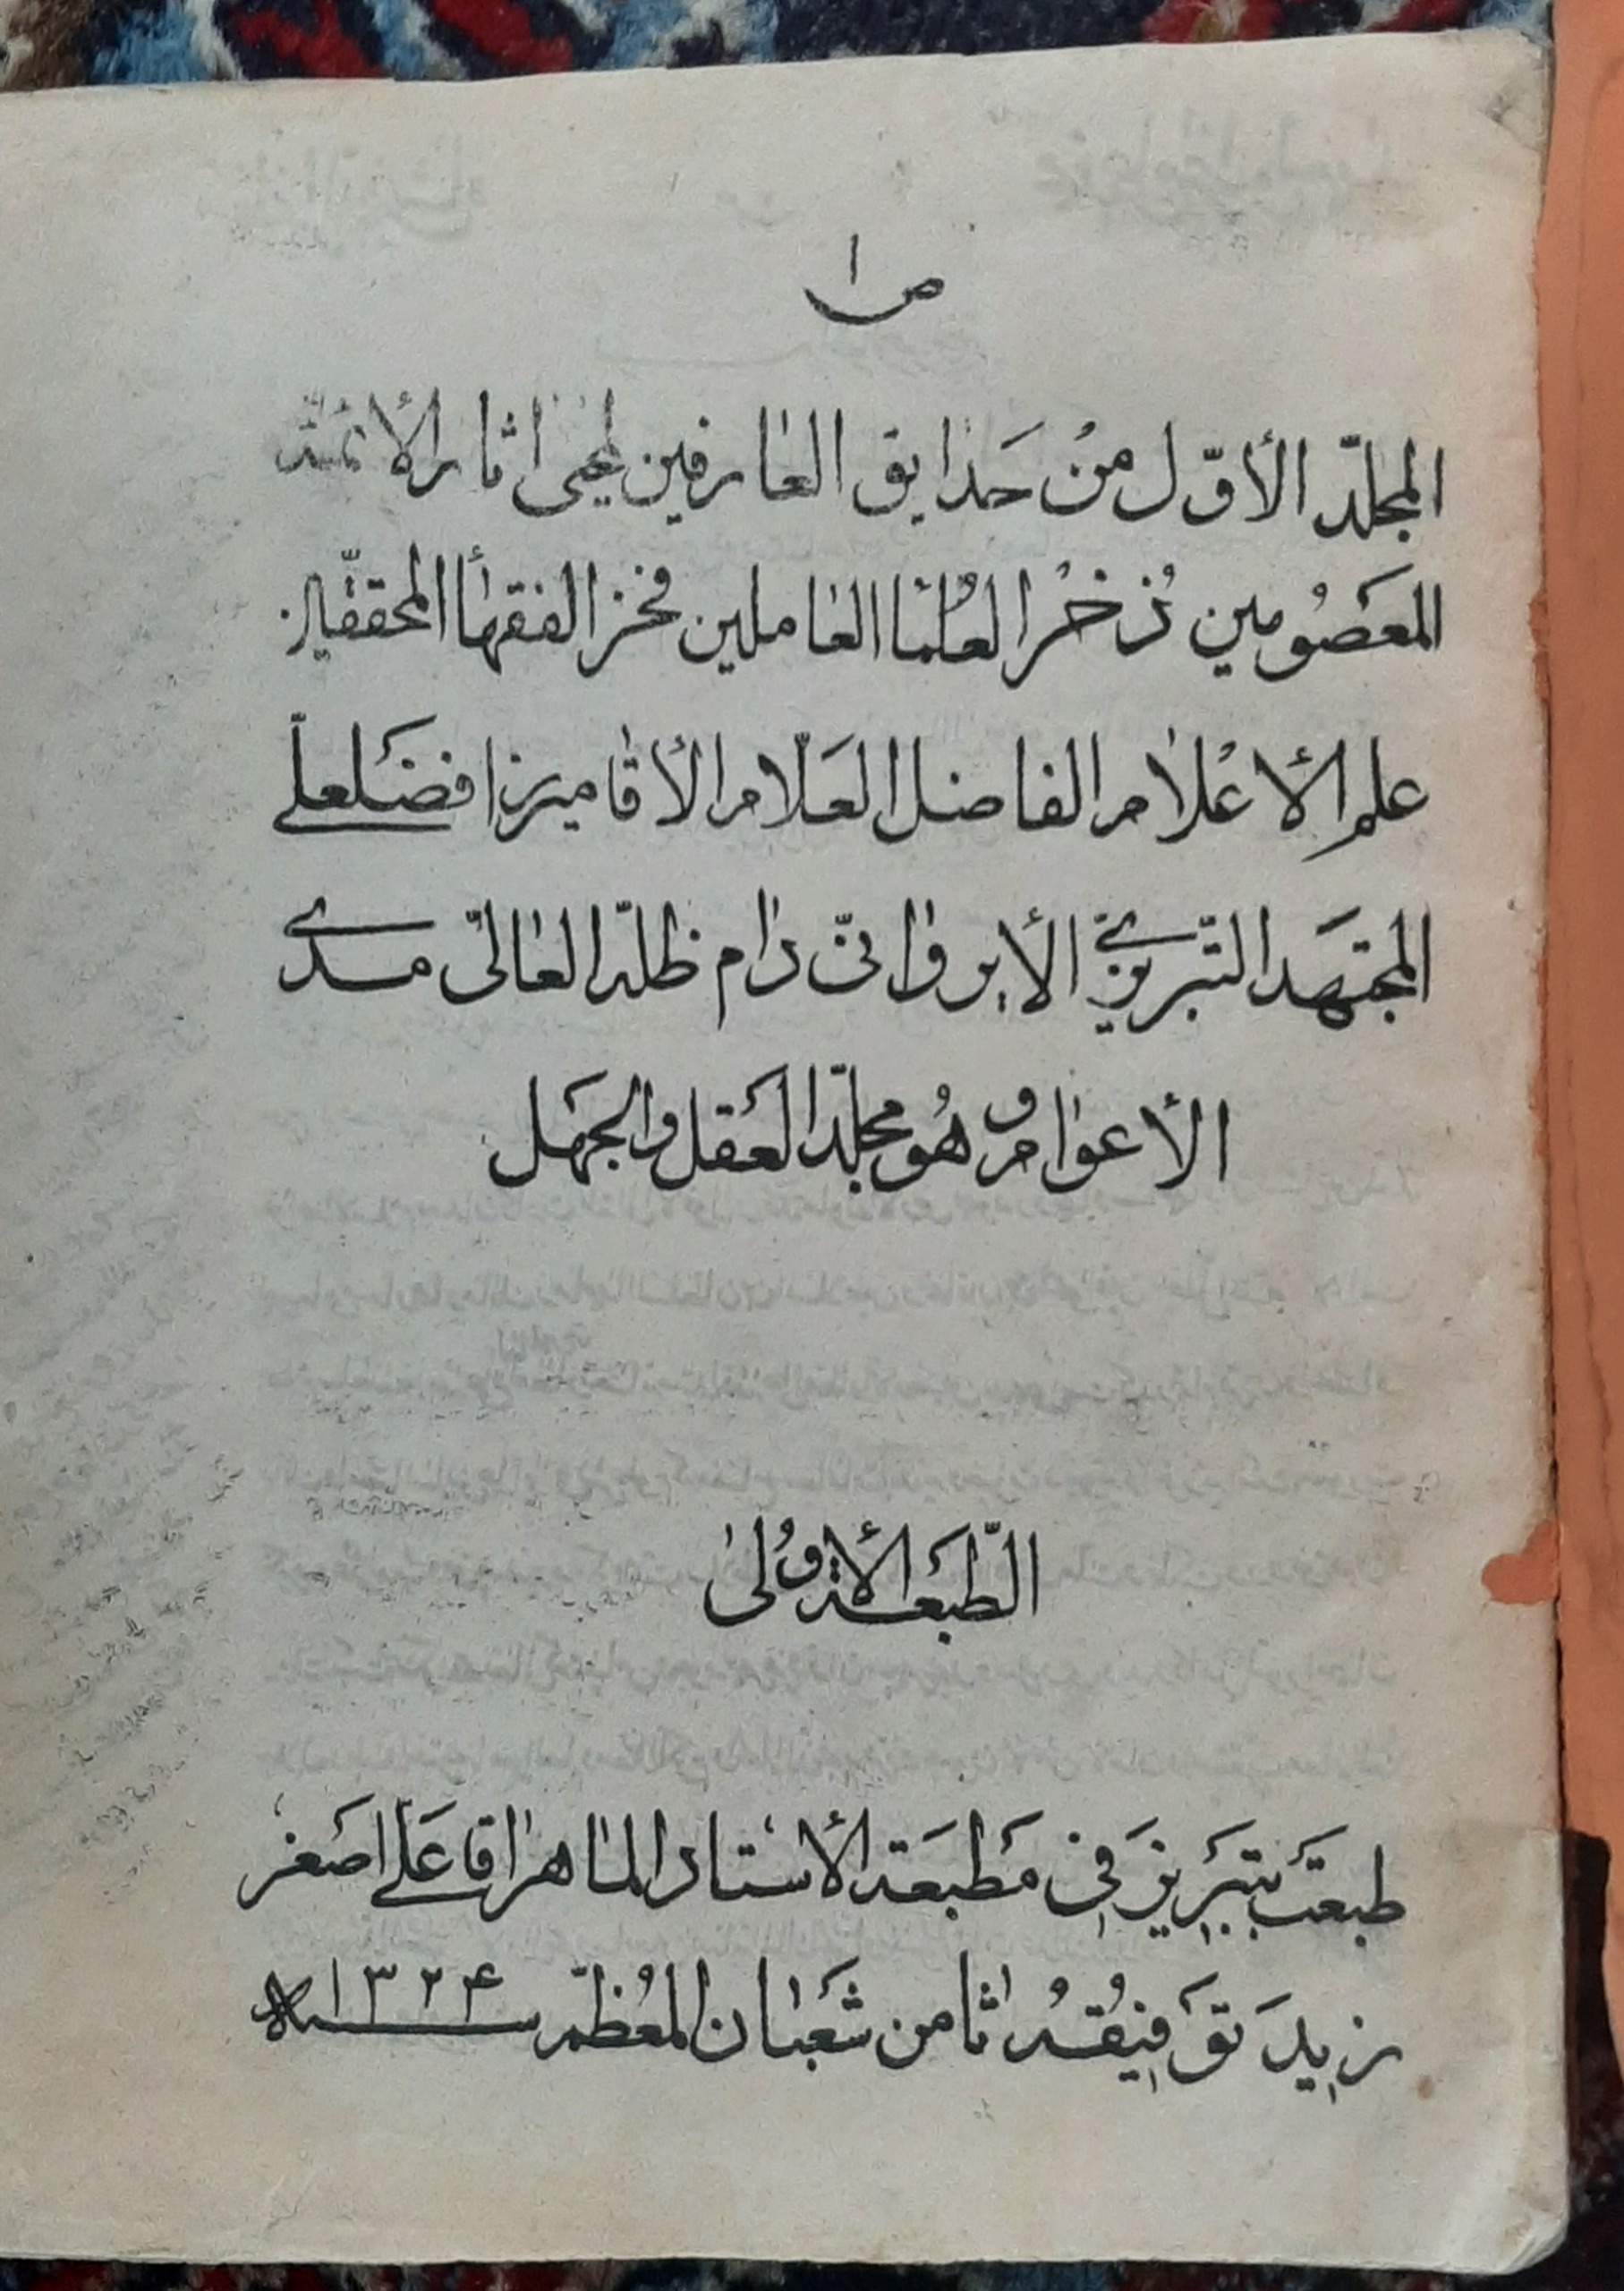 ص ١
المجلّد الأوّل من حَدايق العارفين لمحيى اثار الأئمّة
المعَصُومين ذُخرُ العُلما العاملين فخر الفقهأ المحققّين
علم الأعْلام الفاضل العَلّام الأقا ميرزا فضَلعلى
المجتهَد التّبريزي الأيروانىّ دام ظلّه العالىّ مدى
الأعوام وهُو مجلّد العَقل والجهَل
الطّبعَة الأوُلى
طبعتَ بتبَريز فِى مَطبعَة الأستاد الماهر اقا عَلى اصَغر
زِيدَ تَوفيِقُهُ ثامن شَعَبان المعُظمّ سنه ١٣٢۴